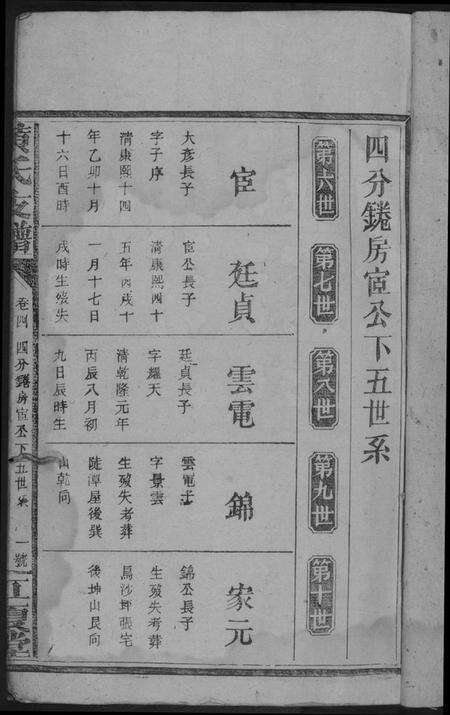 四分錈房宦公下五世系
第六世
第七世
第八世
第九世
第十世
宦
大彥長子
字子序
清康熙十四
年乙卯十月
十六日酉時
廷貞
宦公長子
清康熙四十
五年丙戌十
一月十七日
戌時生娶失
雲電
廷貞長子
字耀天
清乾隆元年
丙辰八月初
九日辰時生
錦
雲電子
字景雲
生歿失考葬
陡潭屋後巽
山乾向
家元
錦公長子
生歿失考葬
馬沙坪張宅
後坤山艮向
黃氏支譜
卷四
四分錈房宦公下五世系
一號